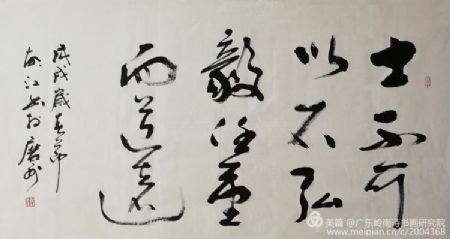 士不可
以不弘
毅任重
而道远
戊戌岁春节
南江书于广州
美篇@广东岭南诗书画研究院
www.meipian.cn/c/2004368